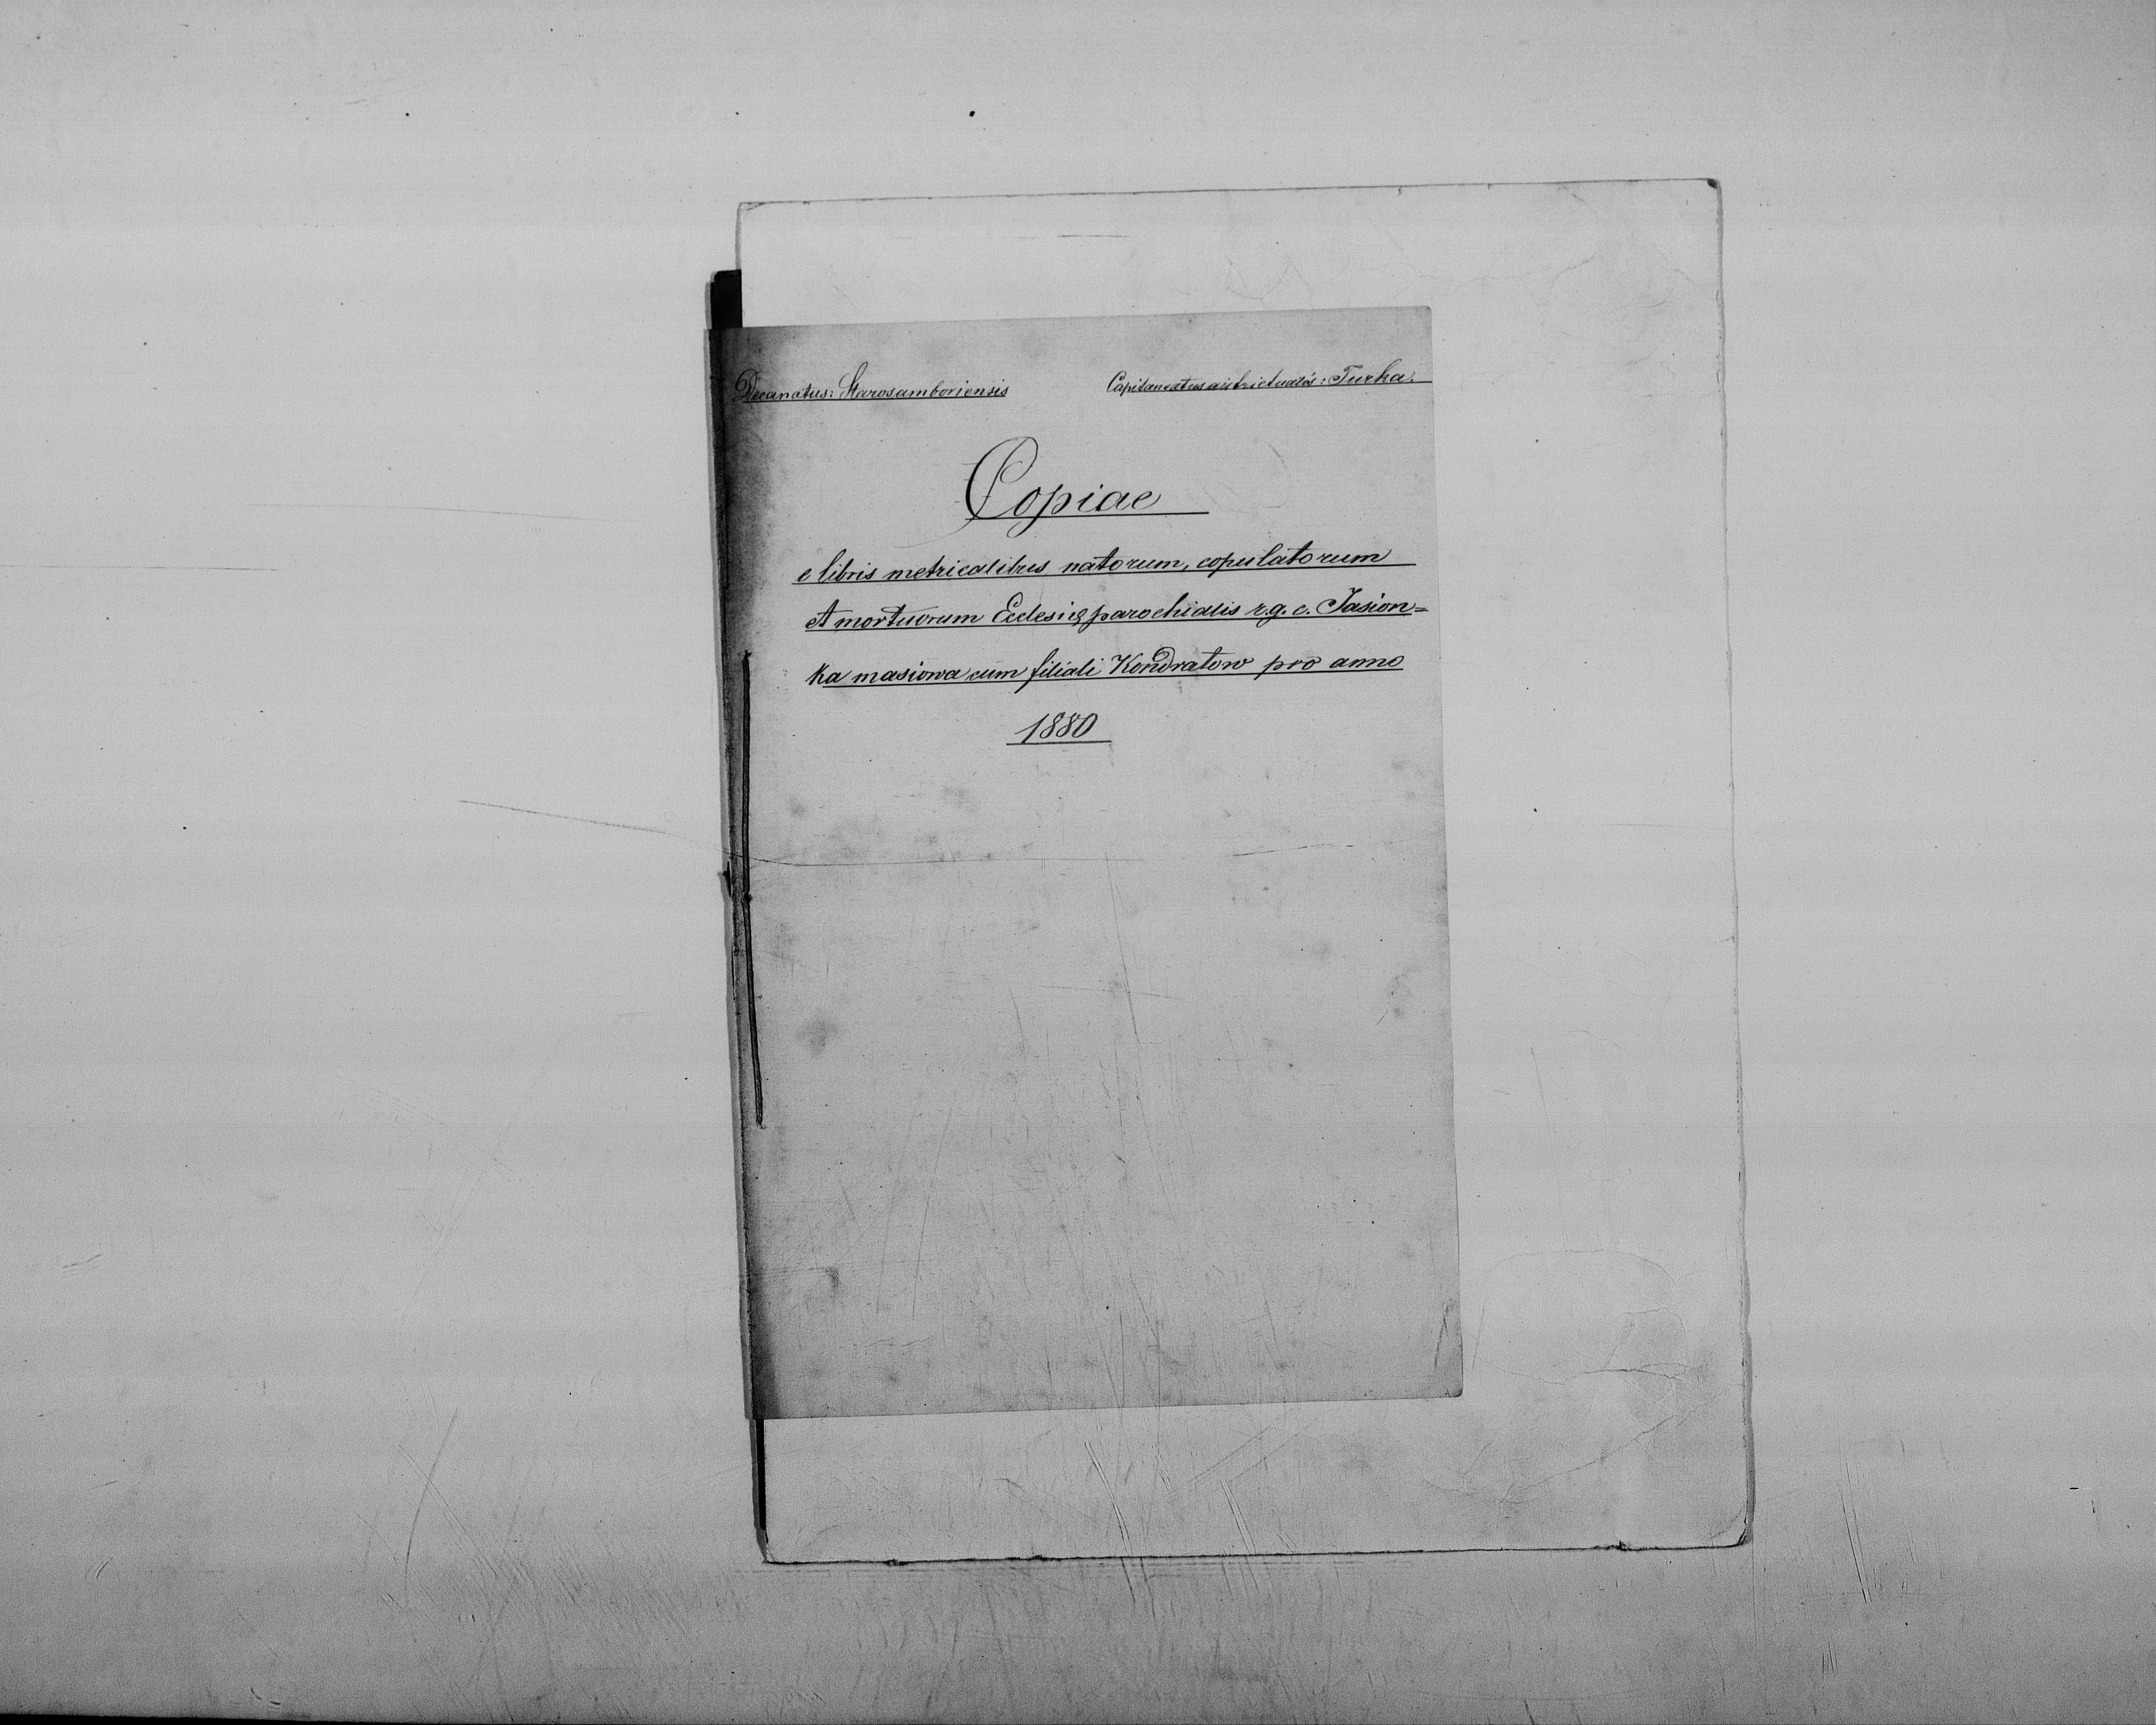 Decanatus: Starosamboriensis Capitaneatus districtualis: Turka.
Copiae
e libris metricalibus natorum, copulatorum
et mortuorum Ecclesiæ parochialis r.g.c. Jasion=
ka masiowa cum filiali Kondratow pro anno
1880